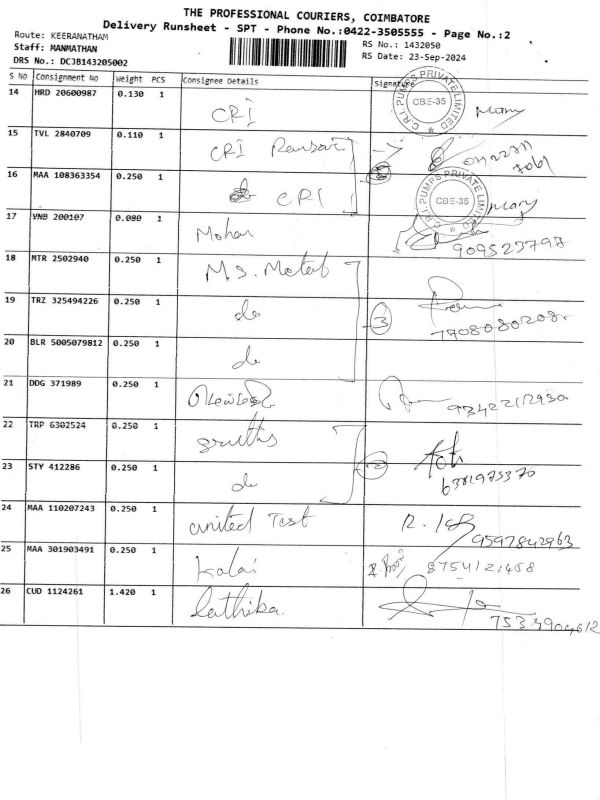 THE PROFESSIONAL COURIERS, COIMBATORE
Delivery Runsheet - SPT - Phone No.:0422-3505555 - Page No.:2
Route: KEERANATHAM
RS No.: 1432050
Staff: MANMATHAN
RS Date: 23-Sep-2024
DRS No.: DCJB143205002
S No Consignment No Weight PCS Consignee Details Signature
14 HRD 20600987 0.130 1 CRI
C.R.I. PUMPS PRIVATE LIMITED
CBE-35
15 TVL 2840709 0.110 1 CRI
16 MAA 108363354 0.250 1 CRI
C.R.I. PUMPS PRIVATE LIMITED
CBE-35
17 VNB 200107 0.080 1 Mohan
909523798
18 MTR 2502940 0.250 1 M.S.
19 TRZ 325494226 0.250 1 do 3
20 BLR 5005079812 0.250 1 do
21 DDG 371989 0.250 1
22 TRP 6302524 0.250 1
23 STY 412286 0.250 1 do 2
6381975370
24 MAA 110207243 0.250 1 united Test
9597842963
25 MAA 301903491 0.250 1 kalai
26 CUD 1124261 1.420 1 lathika